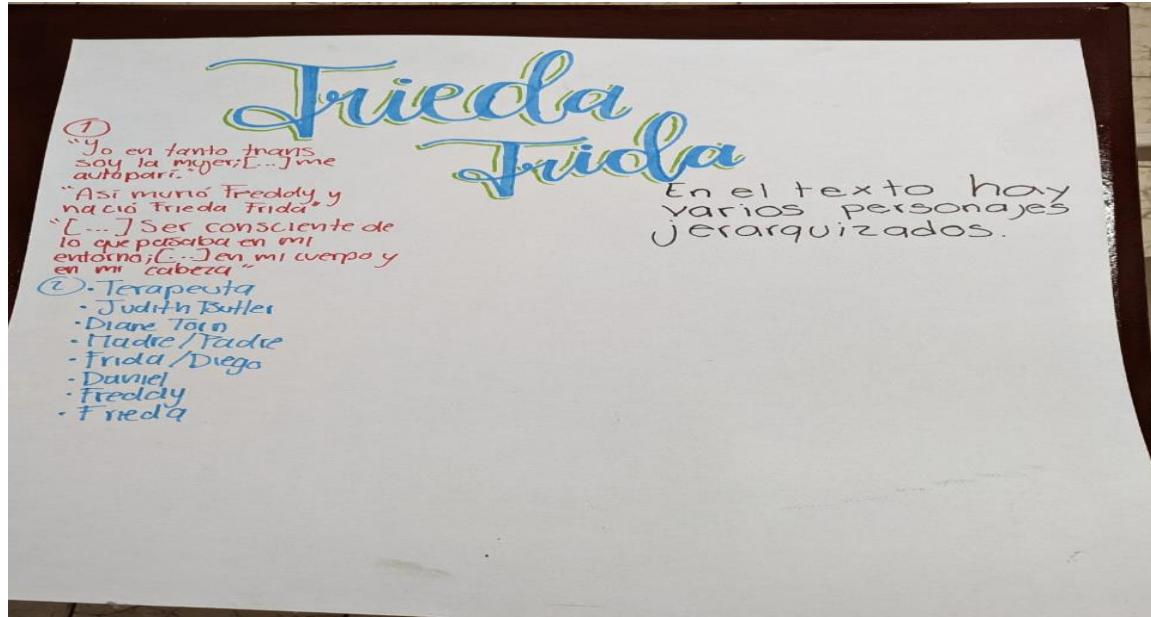 Frieda
Frida
①
"Yo en tanto trans
soy la mujer; [...] me
autoparí."
"Así murió Freddy y
nació Frieda Frida"
"[...] Ser consciente de
lo que pasaba en mi
entorno; [...] en mi cuerpo y
en mi cabeza"
② • Terapeuta
• Judith Butler
• Diane Torn
• Madre / Padre
• Frida / Diego
• Daniel
• Freddy
• Frieda
En el texto hay
varios personajes
jerarquizados.